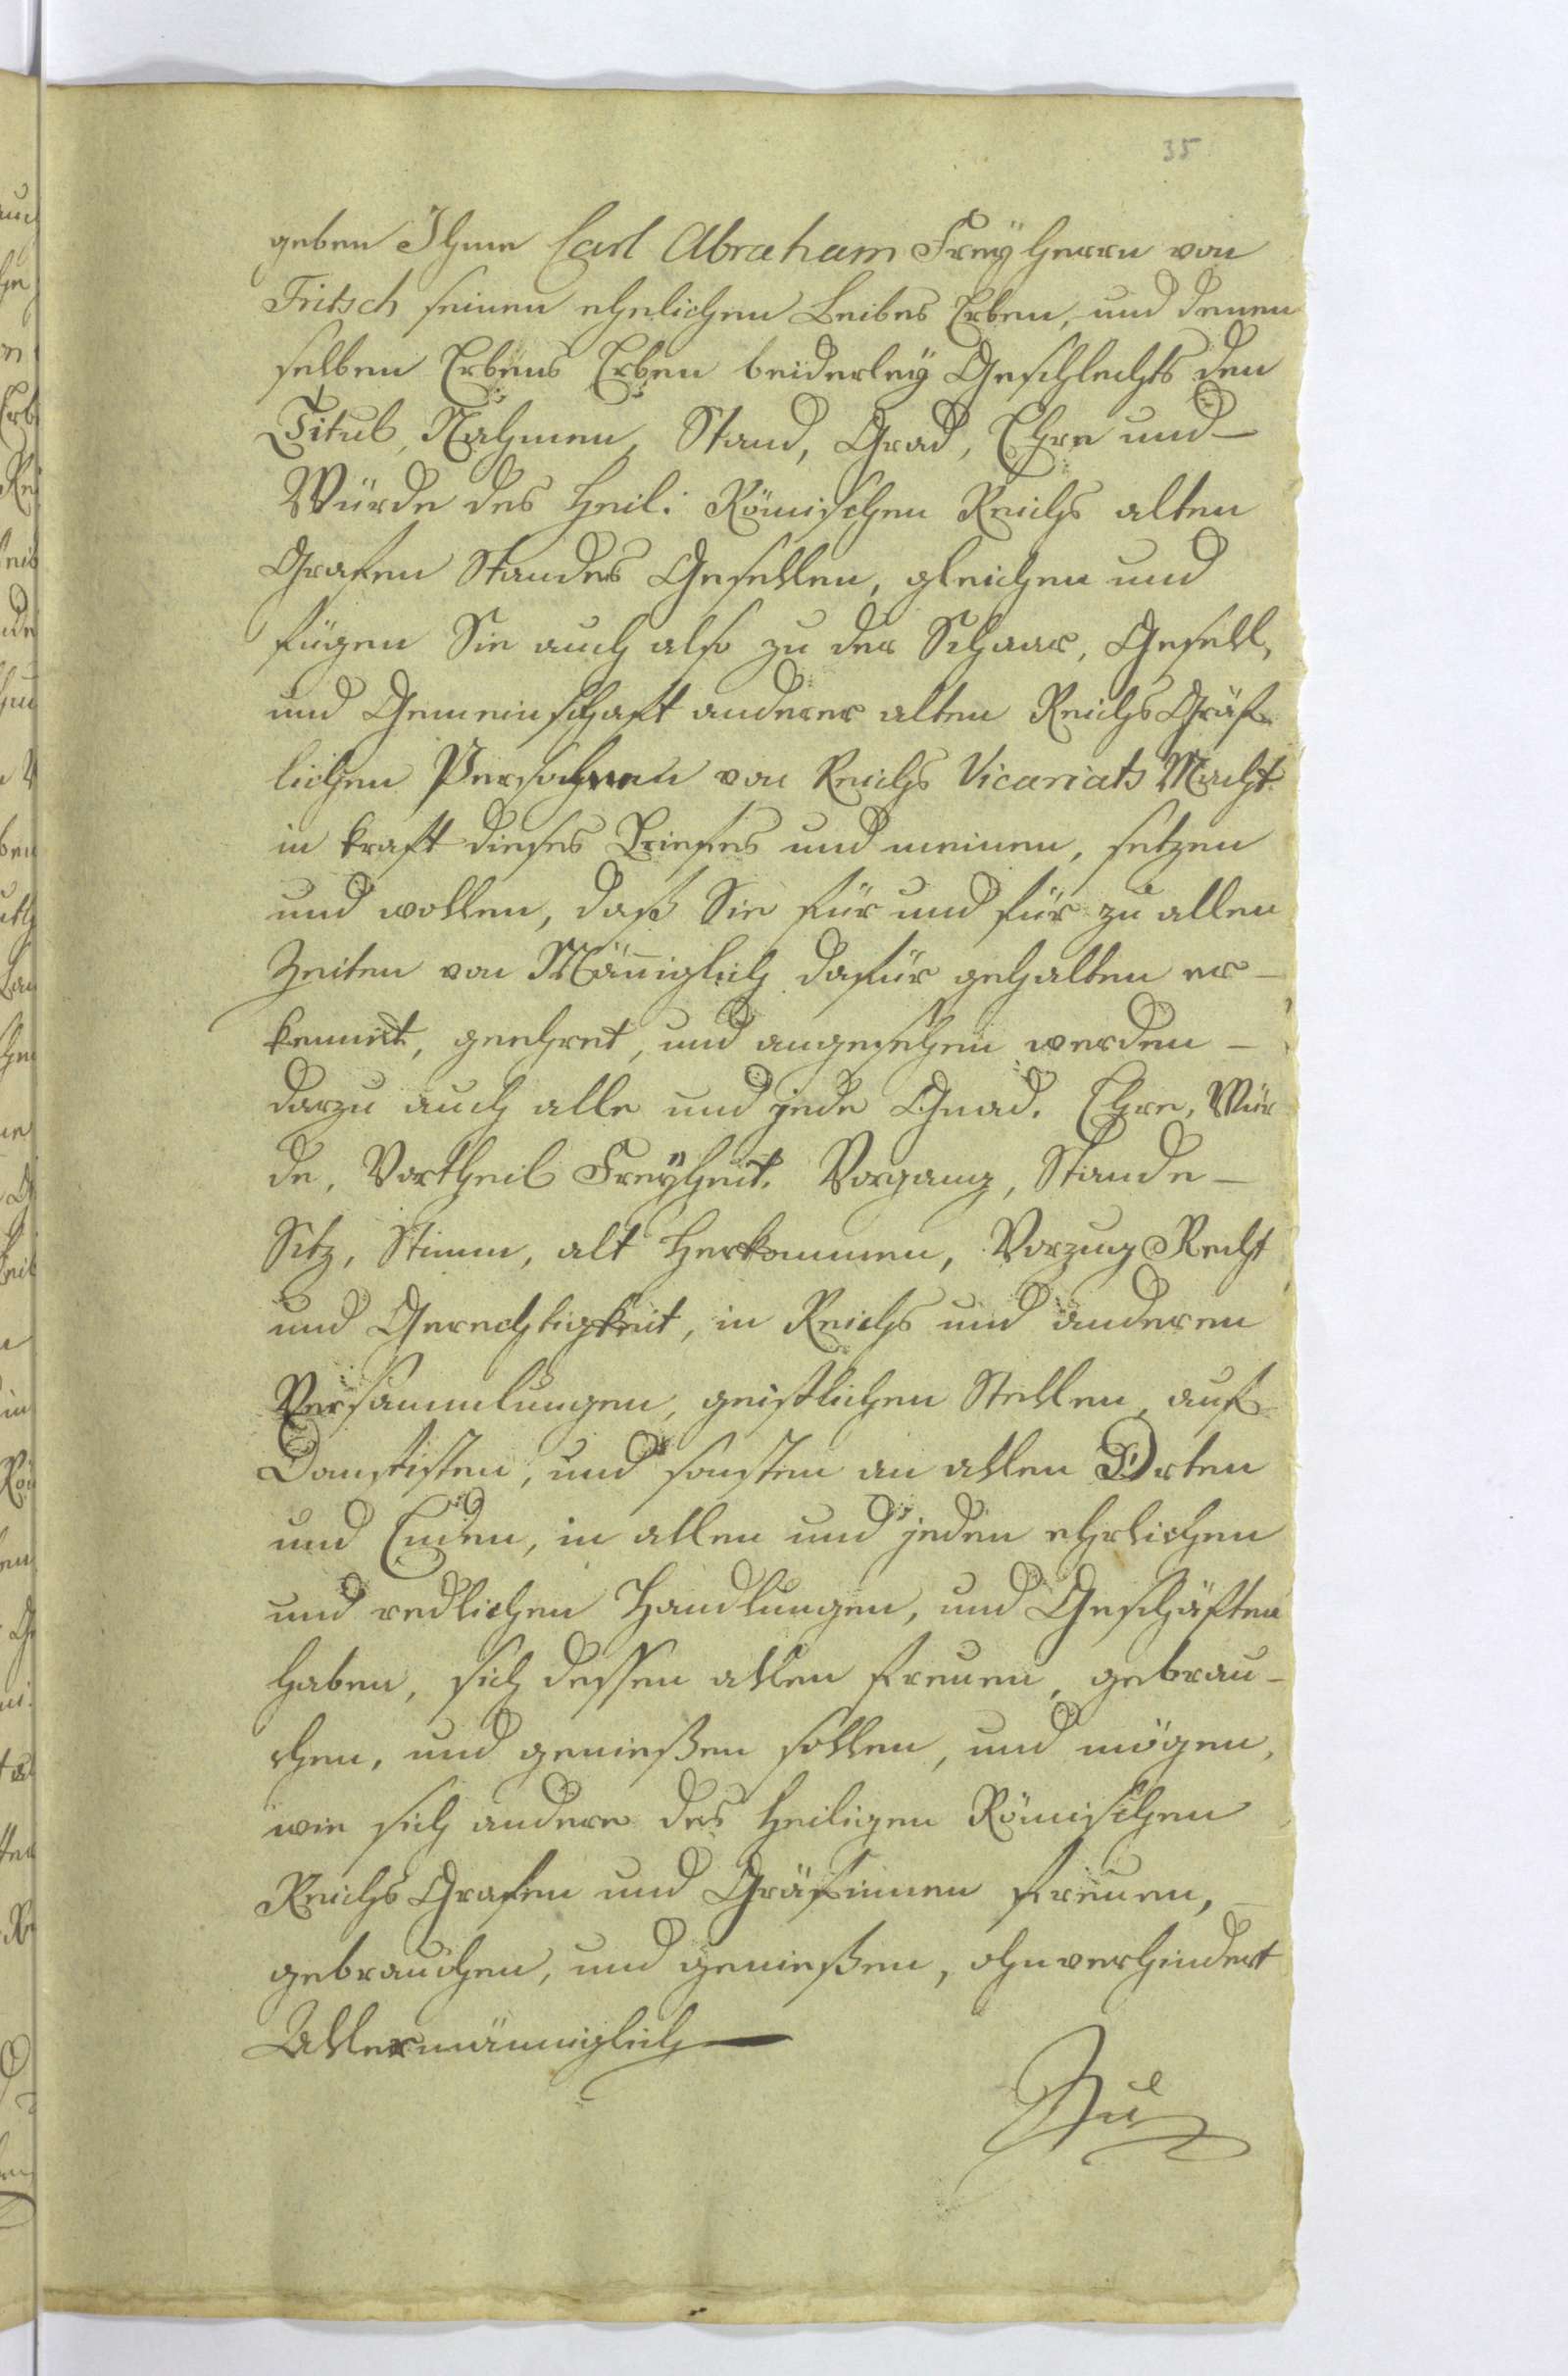 35
geben Ihme Carl Abraham Freyherrn von
Fritsch seinen ehelichen Leibes Erben, und denen
selben Erbens Erben beiderley Geschlechts den
Titul, Nahmen, Stand, Grad, Ehre und
Würde des Heil: Römischen Reichs alten
Grafen Standes Gesellen, gleichen und
fügen Sie auch also zu der Schaar, Gesell,
und Gemeinschaft anderer alten Reichs Gräf
lichen Persohnen von Reichs Vicariats Macht
in kraft dieses Briefes und meinen, setzen
und wollen, daß Sie für und für zu allen
Zeiten von Mäniglich dafür gehalten er-
kennet, geehret, und angesehen werden -
darzu auch alle und jede Gnad. Ehre, Wür
de, Vortheil Freyheit. Vorgang, Stande -
Sitz, Stimm, alt Herkommen, Vorzug Recht
und Gerechtigkeit, in Reichs und anderen
Versammlungen, geistlichen Stellen, auf
Domstiften, und sonsten an allen Orten
und Enden, in allen und jeden ehrlichen
und redlichen Handlungen, und Geschäften
haben, sich dessen allen freuen, gebrau-
chen, und genießen sollen, und mögen,
wie sich andere des heiligen Römischen
Reichs Grafen und Gräfinnen freuen,
gebrauchen, und genießen, ohnverhindert
Allermänniglich